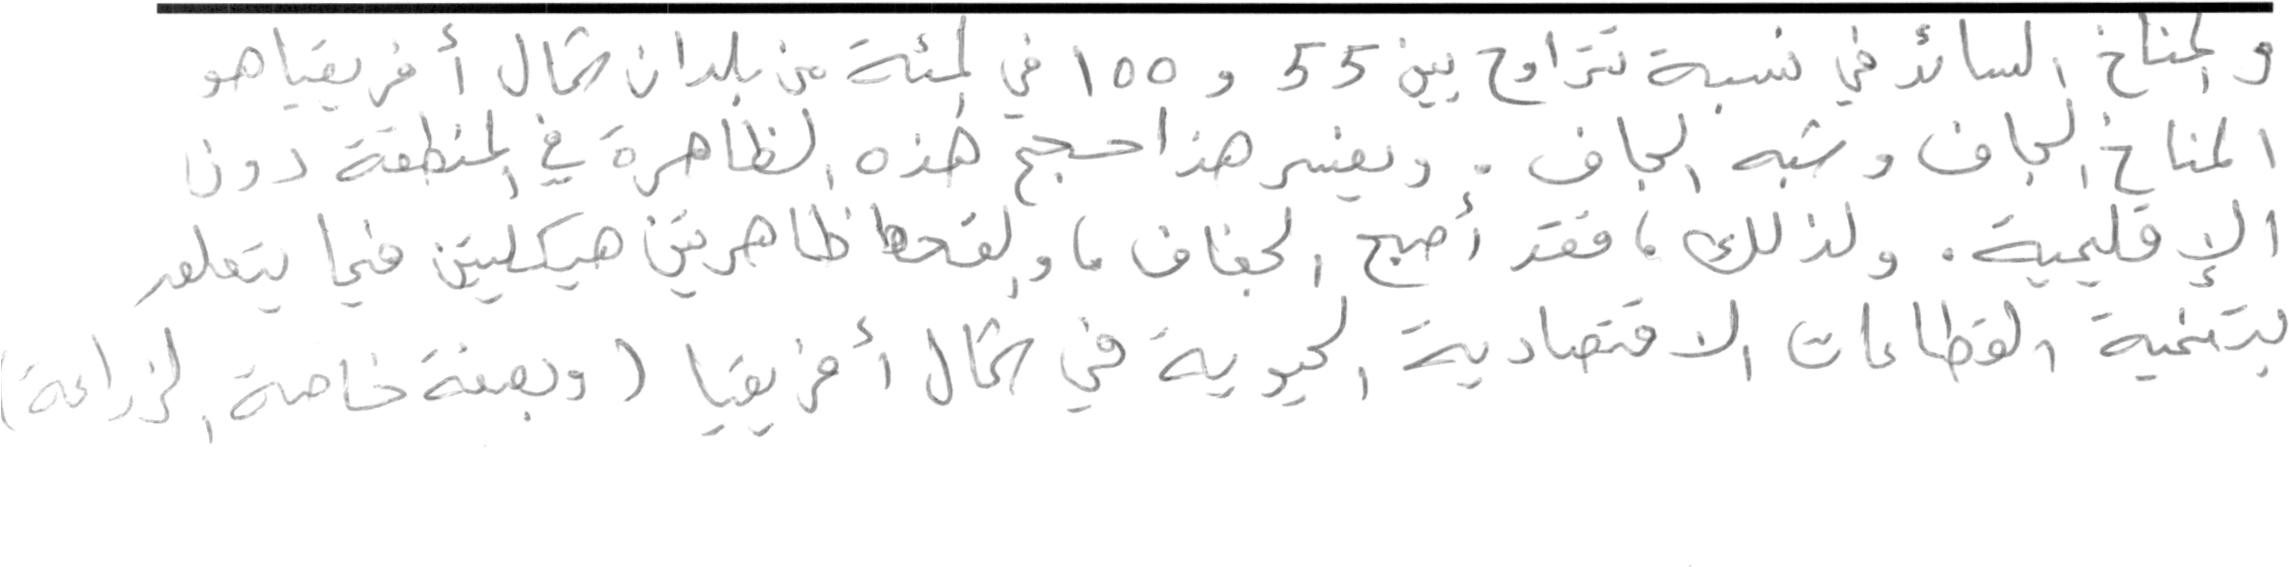 والمناخ السائد في نسبة تتراوح بين 55 و 100 في المئة من بلدان شمال أفريقيا هو
المناخ الجاف وشبه الجاف . ويفسر هذا حجج هذه الظاهرة في المنطقة دون
الإقليمية . ولذلك ، فقد أصبح الجفاف ، والقحط ظاهرتين هيكليتين فيما يتعلق
بتنمية القطاعات الاقتصادية الحيوية في شمال أفريقيا ( وبصفة خاصة الزراعة)